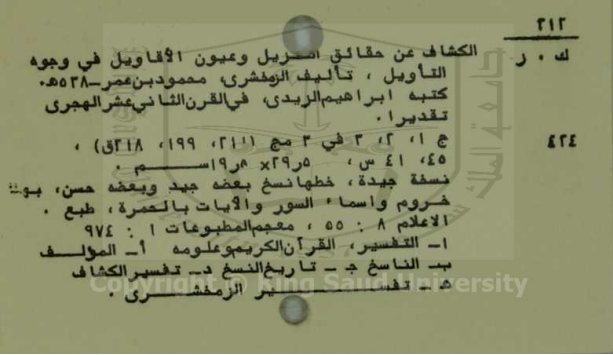 ٢١٢
ك . ر الكشاف عن حقائق التنزيل وعيون الأقاويل في وجوه
التأويل ، تأليف الزمخشرى، محمودبن عمر ــ ٥٣٨هـ.
كتبه ابراهيم الزيدى، في القرن الثاني عشر الهجرى
تقديرا .
٤٢٤ ج ١، ٢، ٣ في ٣ مج ( ، ١٩٩، ٢١٨ق) ،
٤٥، ٤١ س ، ٥ر٢٩× ر١٩ســم
نسخة جيدة، خطها نسخ بعضه جيد وبعضه حسن، بها
خروم واسماء السور والآيات بالحمرة، طبع .
الاعلام ٨ : ٥٥ ، معجم المطبوعات ١ : ٩٧٤
١ــ التفسير، القرآن الكريم وعلومه أ ــ المؤلــف
ب ــ الناسخ جـ ــ تاريخ النسخ د ــ تفسير الكشاف
هـ ــ تفســير الزمخشــرى .
Copyright © King Saud University